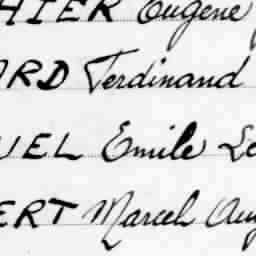 HIER Eugene
ARD Ferdinand
UEL Emile Le
ERT Marcel Aug